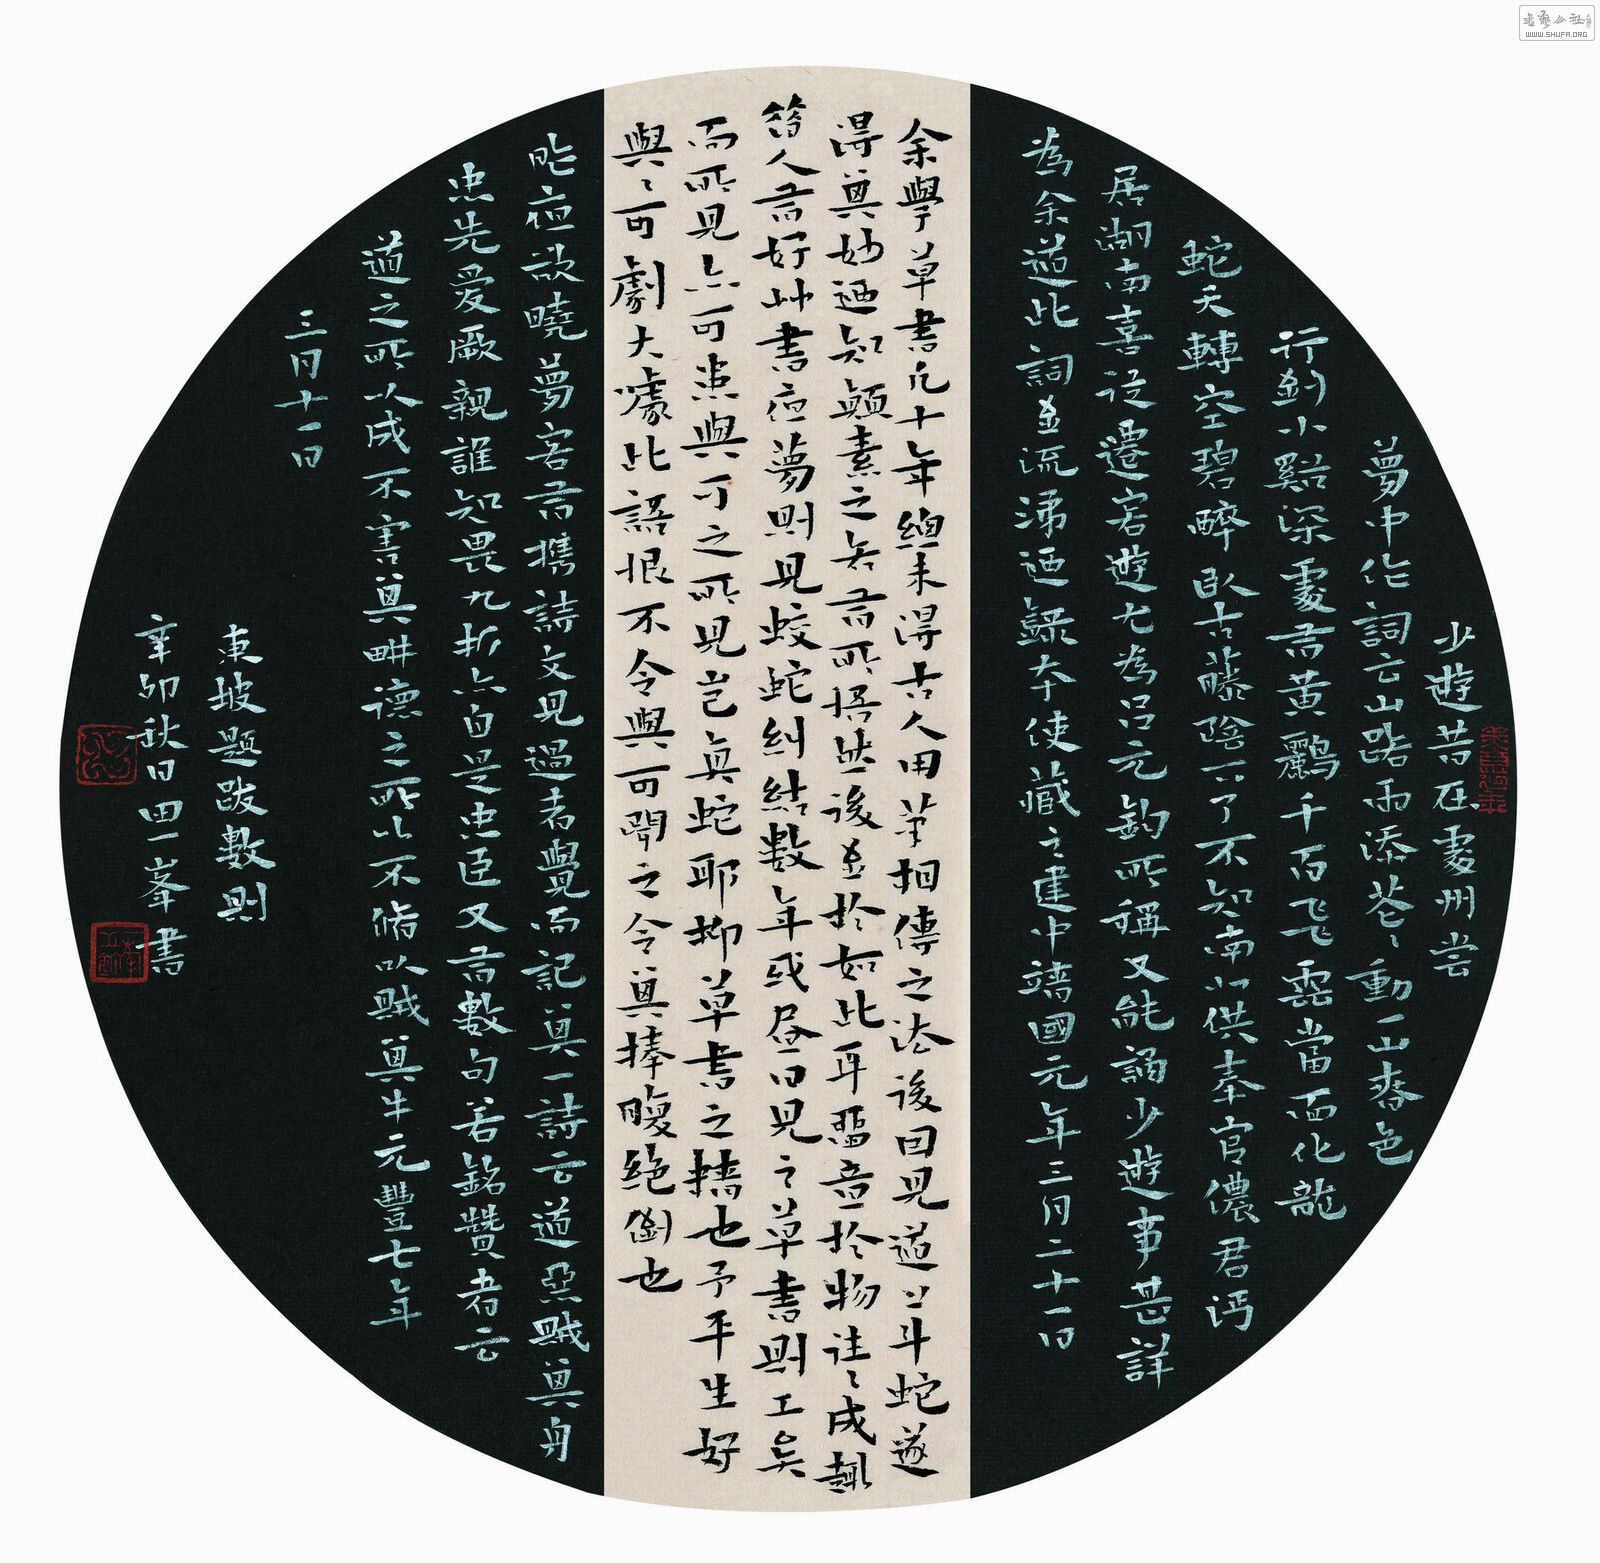 少遊昔在處州嘗
夢中作詞云山路雨添花〻動一山春色
行到小谿深處有黃鸝千百飛雲當面化龍
蛇夭轉空碧醉臥古藤陰下了不知南北供奉官儂君沔
居湖南喜從遷客遊尤為呂元鈞所稱又能誦少遊事甚詳
為余道此詞至流涕迺錄本使藏之建中靖國元年三月二十一日
余學草書凡十年總未得古人用筆相傳之法後因見道上鬥蛇遂
得其妙迺知顛素之各有所悟然後至於如此耳留意於物往〻成趣
昔人有好艸書夜夢則見蛟蛇糾結數年或晝日見之草書則工矣
而所見亦可患與可之所見豈真蛇耶抑草書之精也予平生好
與〻可劇大噱此語恨不令與可聞之令其捧腹絕倒也
昨夜欲曉夢客有攜詩文見過者覺而記其一詩云道惡賊其身
忠先愛厥親誰知畏九折亦自是忠臣又有數句若銘贊者云
道之所以成不害其畊德之所以不脩以賊其牛元豐七年
三月十一日
東坡題跋數則
辛卯秋日田一峯書
書藝公社
WWW.SHUFA.ORG